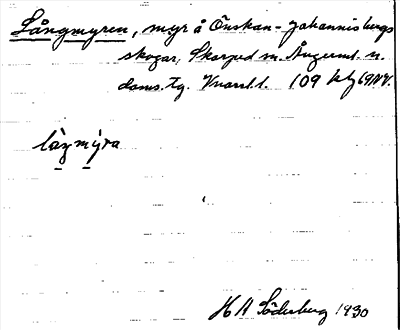 Långmyren, myr å Önskan-Johannisbergs
skogar, Skorped sn. Ångerml. n.
doms. tg. Kvarsl. l. 109 69NV.
låŋmýra
H A Söderberg 1930